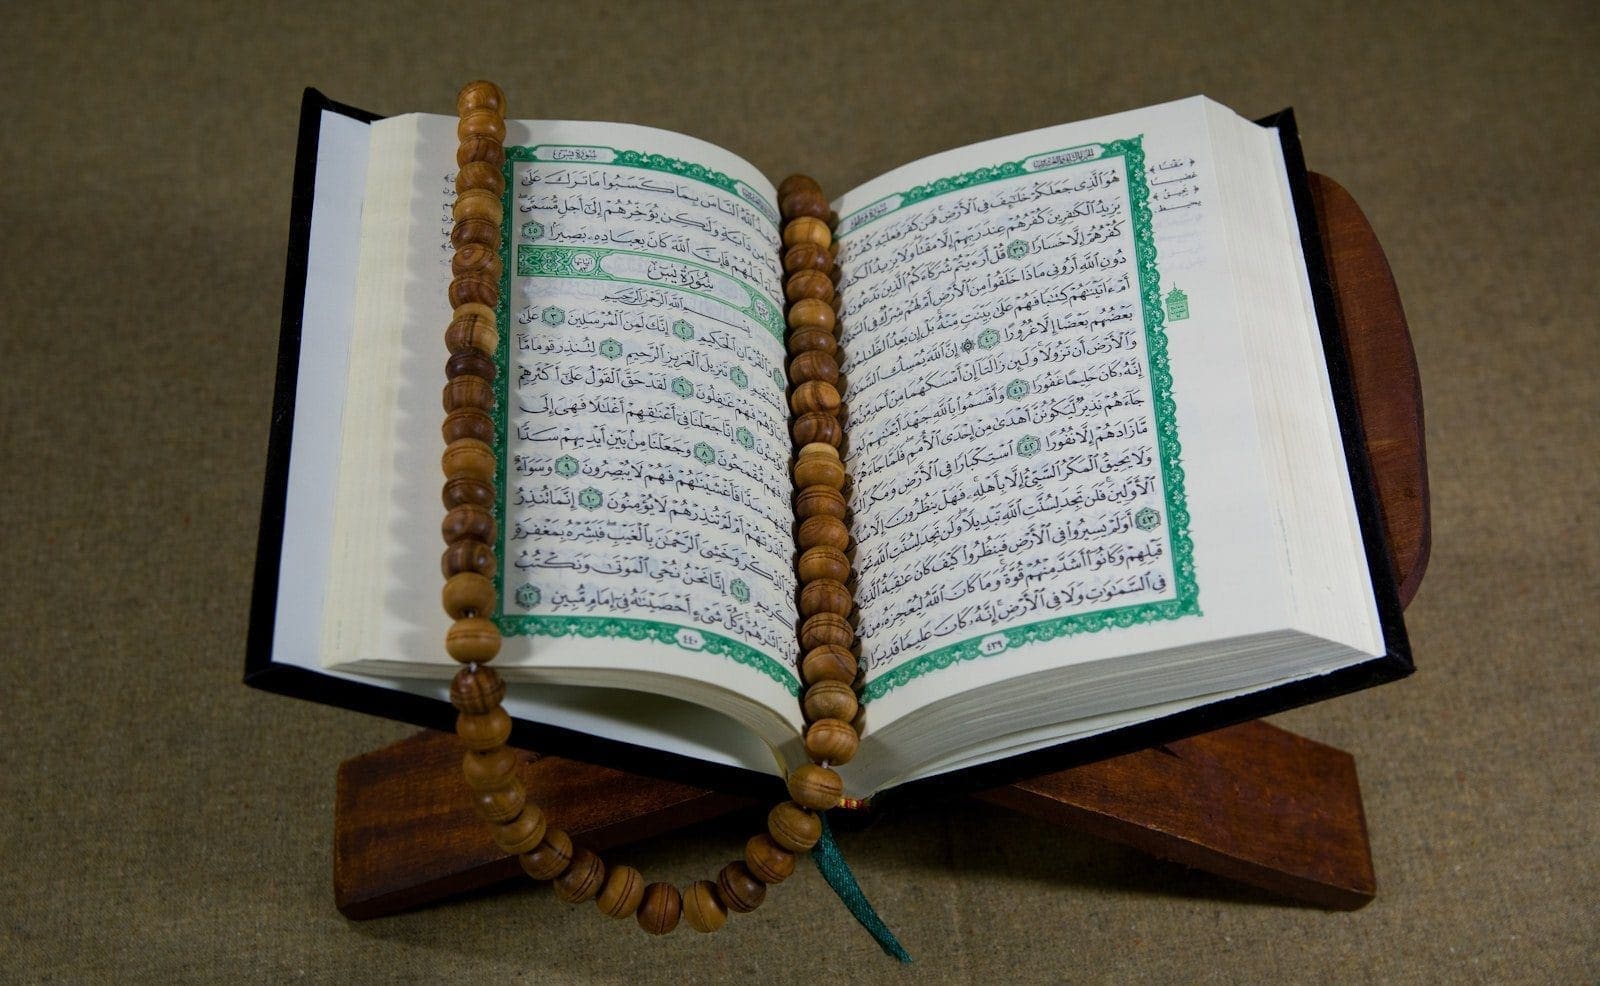 سُورَةُ فَاطِرٍ
الجُزْءُ الثَّانِي وَالعِشْرُونَ
هُوَ الَّذِي جَعَلَكُمْ خَلَٰٓئِفَ فِي الْأَرْضِ فَمَن كَفَرَ فَعَلَيْهِ كُفْرُهُ
يَزِيدُ الْكَٰفِرِينَ كُفْرُهُمْ عِندَ رَبِّهِمْ إِلَّا مَقْتًا وَلَا يَزِيدُ
كُفْرُهُمْ إِلَّا خَسَارًا ٣٩ قُلْ أَرَءَيْتُمْ شُرَكَآءَكُمُ الَّذِينَ تَدْعُونَ
دُونِ اللَّهِ أَرُونِي مَاذَا خَلَقُوا مِنَ الْأَرْضِ أَمْ لَهُمْ شِرْكٌ فِي
أَمْ ءَاتَيْنَٰهُمْ كِتَٰبًا فَهُمْ عَلَىٰ بَيِّنَتٍ مِّنْهُ بَلْ إِن يَعِدُ الظَّٰلِمُونَ
بَعْضُهُم بَعْضًا إِلَّا غُرُورًا ٤٠ ۞ إِنَّ اللَّهَ يُمْسِكُ
وَالْأَرْضَ أَن تَزُولَا وَلَئِن زَالَتَآ إِنْ أَمْسَكَهُمَا مِنْ أَحَدٍ مِّن
إِنَّهُ كَانَ حَلِيمًا غَفُورًا ٤١ وَأَقْسَمُوا بِاللَّهِ جَهْدَ أَيْمَٰنِهِمْ لَئِن
جَآءَهُمْ نَذِيرٌ لَّيَكُونُنَّ أَهْدَىٰ مِنْ إِحْدَى الْأُمَمِ فَلَمَّا جَآءَهُمْ
مَّا زَادَهُمْ إِلَّا نُفُورًا ٤٢ اسْتِكْبَارًا فِي الْأَرْضِ وَمَكْرَ
وَلَا يَحِيقُ الْمَكْرُ السَّيِّئُ إِلَّا بِأَهْلِهِ فَهَلْ يَنظُرُونَ إِلَّا
الْأَوَّلِينَ فَلَن تَجِدَ لِسُنَّتِ اللَّهِ تَبْدِيلًا وَلَن تَجِدَ لِسُنَّتِ اللَّهِ
٤٣ أَوَلَمْ يَسِيرُوا فِي الْأَرْضِ فَيَنظُرُوا كَيْفَ كَانَ عَٰقِبَةُ الَّذِينَ
قَبْلِهِمْ وَكَانُوٓا أَشَدَّ مِنْهُمْ قُوَّةً وَمَا كَانَ اللَّهُ لِيُعْجِزَهُ مِن
فِي السَّمَٰوَٰتِ وَلَا فِي الْأَرْضِ إِنَّهُ كَانَ عَلِيمًا قَدِيرًا
٤٣٩
مَقْتًا
غَضَبًا
يَحِيقُ
يحيط
سُورَةُ يسٓ
اللَّهُ النَّاسَ بِمَا كَسَبُوا مَا تَرَكَ عَلَىٰ
مِن دَآبَّةٍ وَلَٰكِن يُؤَخِّرُهُمْ إِلَىٰٓ أَجَلٍ مُّسَمًّى
أَجَلُهُمْ فَإِنَّ اللَّهَ كَانَ بِعِبَادِهِ بَصِيرًا ٤٥
سُورَةُ يسٓ
بِسْمِ اللَّهِ الرَّحْمَٰنِ الرَّحِيمِ
وَالْقُرْءَانِ الْحَكِيمِ ٢ إِنَّكَ لَمِنَ الْمُرْسَلِينَ ٣ عَلَىٰ
مُّسْتَقِيمٍ ٤ تَنزِيلَ الْعَزِيزِ الرَّحِيمِ ٥ لِتُنذِرَ قَوْمًا مَّآ
ءَابَآؤُهُمْ فَهُمْ غَٰفِلُونَ ٦ لَقَدْ حَقَّ الْقَوْلُ عَلَىٰٓ أَكْثَرِهِمْ
يُؤْمِنُونَ ٧ إِنَّا جَعَلْنَا فِيٓ أَعْنَٰقِهِمْ أَغْلَٰلًا فَهِيَ إِلَى
فَهُم مُّقْمَحُونَ ٨ وَجَعَلْنَا مِن بَيْنِ أَيْدِيهِمْ سَدًّا
سَدًّا فَأَغْشَيْنَٰهُمْ فَهُمْ لَا يُبْصِرُونَ ٩ وَسَوَآءٌ
ءَأَنذَرْتَهُمْ أَمْ لَمْ تُنذِرْهُمْ لَا يُؤْمِنُونَ ١٠ إِنَّمَا تُنذِرُ
الذِّكْرَ وَخَشِيَ الرَّحْمَٰنَ بِالْغَيْبِ فَبَشِّرْهُ بِمَغْفِرَةٍ
كَرِيمٍ ١١ إِنَّا نَحْنُ نُحْيِ الْمَوْتَىٰ وَنَكْتُبُ
وَءَاثَٰرَهُمْ وَكُلَّ شَيْءٍ أَحْصَيْنَٰهُ فِيٓ إِمَامٍ مُّبِينٍ ١٢
٤٤٠